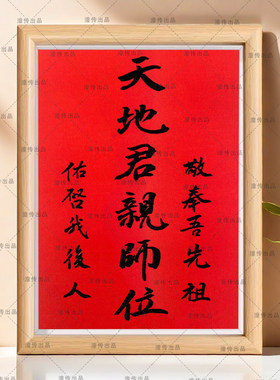 敬奉吾先祖
天地君親師位
佑啓我後人